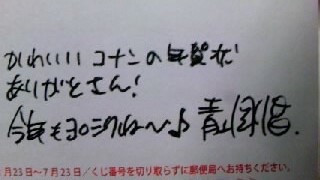 かわいい コナンの年賀状
ありがとさん!
今年もヨロシクね〜♪ 青山剛昌.
月23日〜7月23日/くじ番号を切り取らずに郵便局へお持ちください。